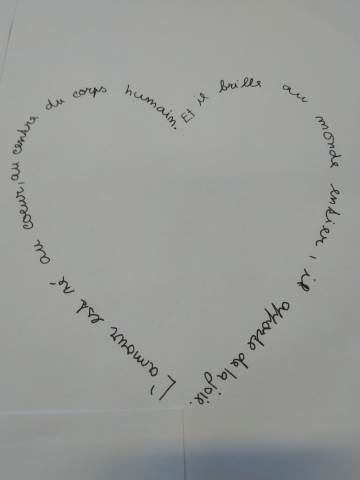 L'amour est né au coeur, au centre du corps humain. Et il brille au monde entier, il apporte de la joie.